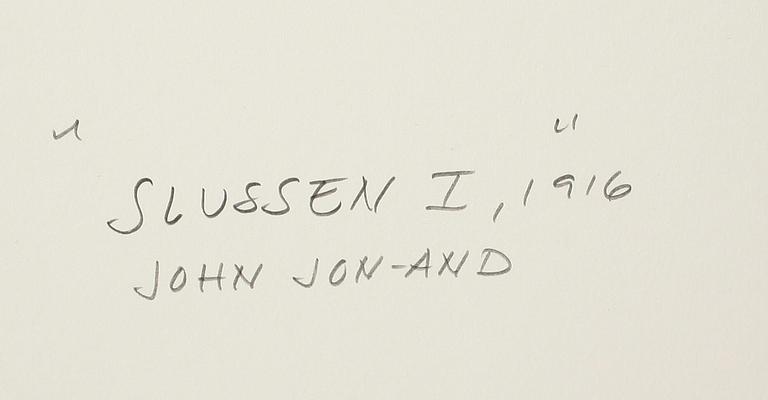 "SLUSSEN I", 1916
JOHN JON-AND